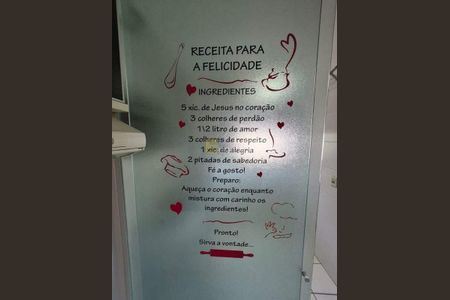 RECEITA PARA
A FELICIDADE
INGREDIENTES
5 xic. de Jesus no coração
3 colheres de perdão
1\2 litro de amor
3 colheres de respeito
1 xic. de alegria
2 pitadas de sabedoria
Fé a gosto!
Preparo:
Aqueça o coração enquanto
mistura com carinho os
ingredientes!
Pronto!
Sirva a vontade...